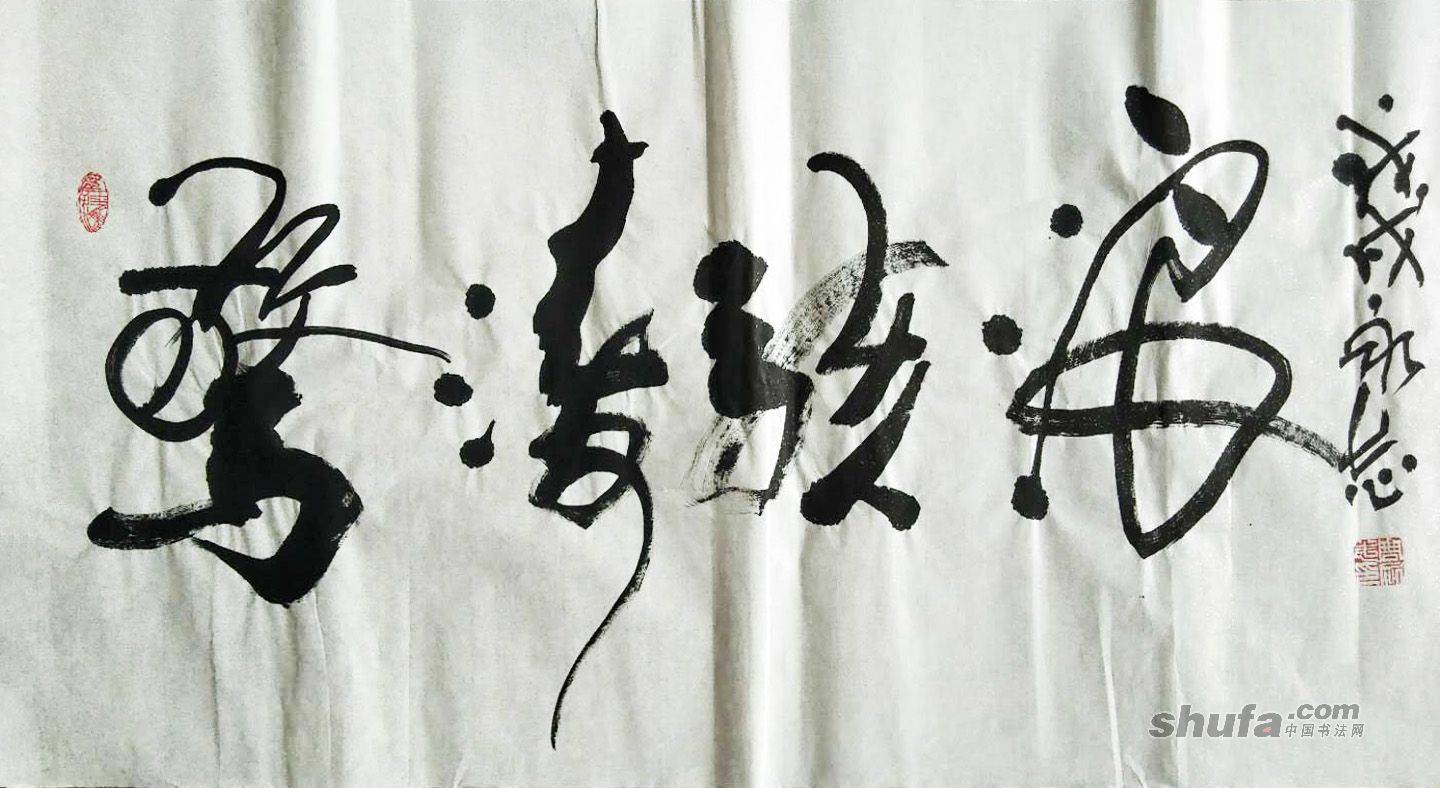 驚濤駭浪
戊戌永志
shufa.com
中国书法网